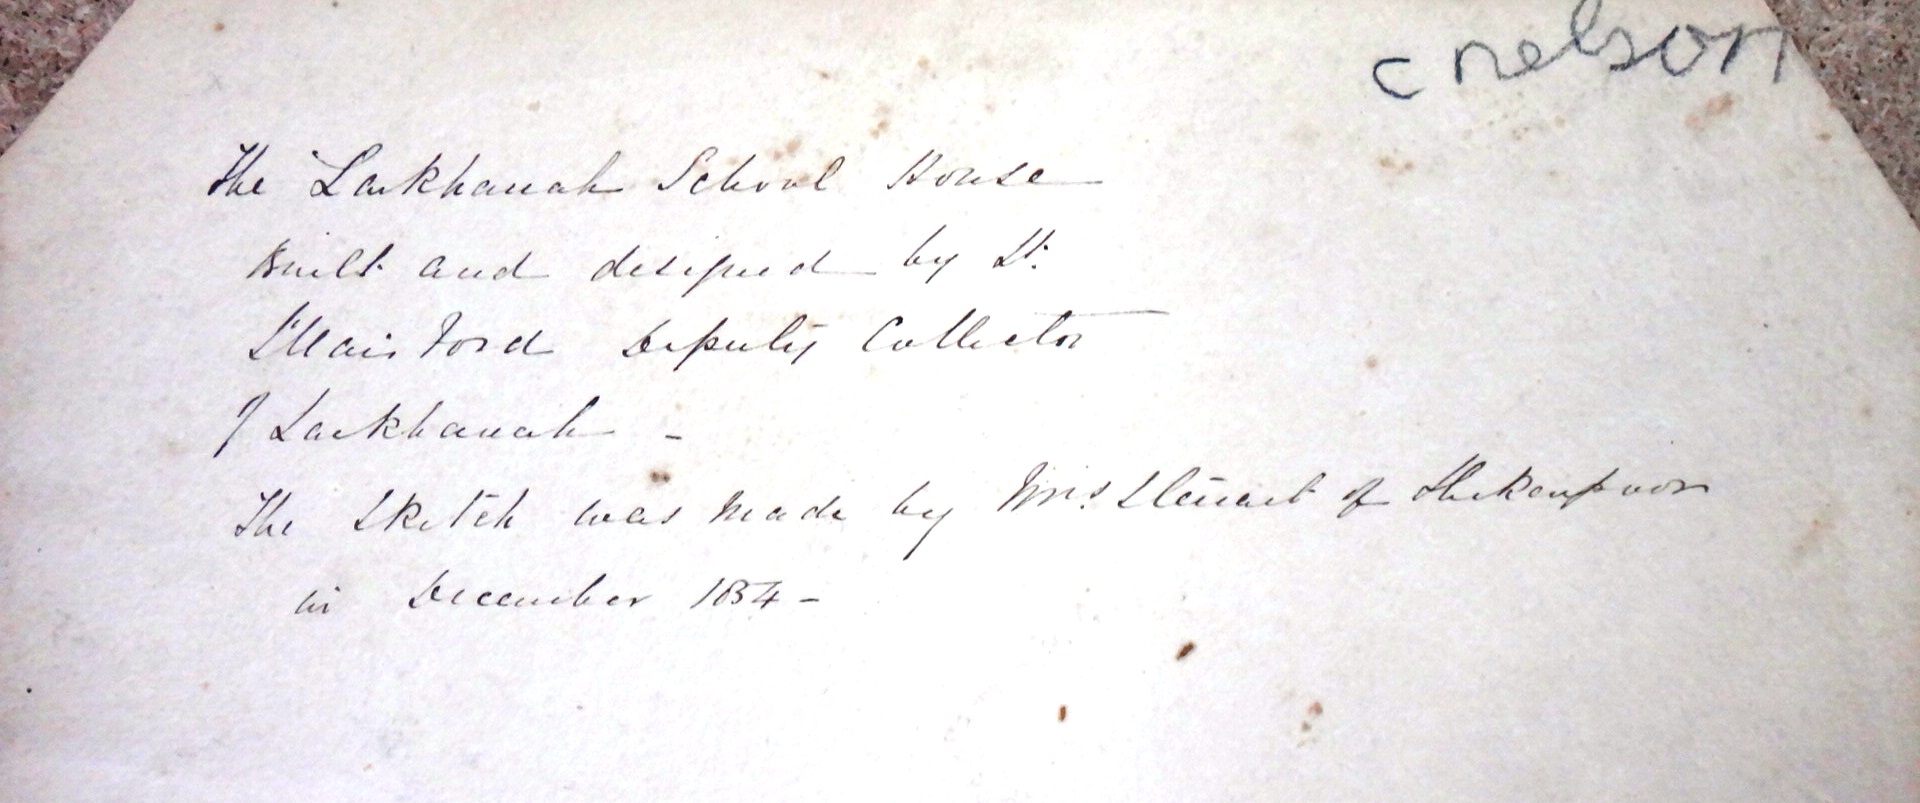 c nelson
The Larkhanah School House
Built and designed by Lt.
St Clair Ford Deputy Collector
of Larkhanah -
The Sketch was made by Mrs. Steuart of Shikarpoor
in December 1854 -